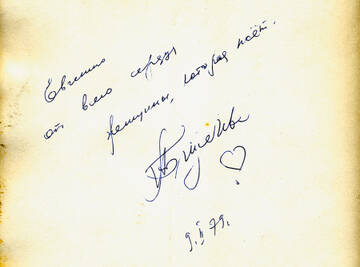 Евгению
от всего сердца
женщины, которая поёт.
9.II 79.